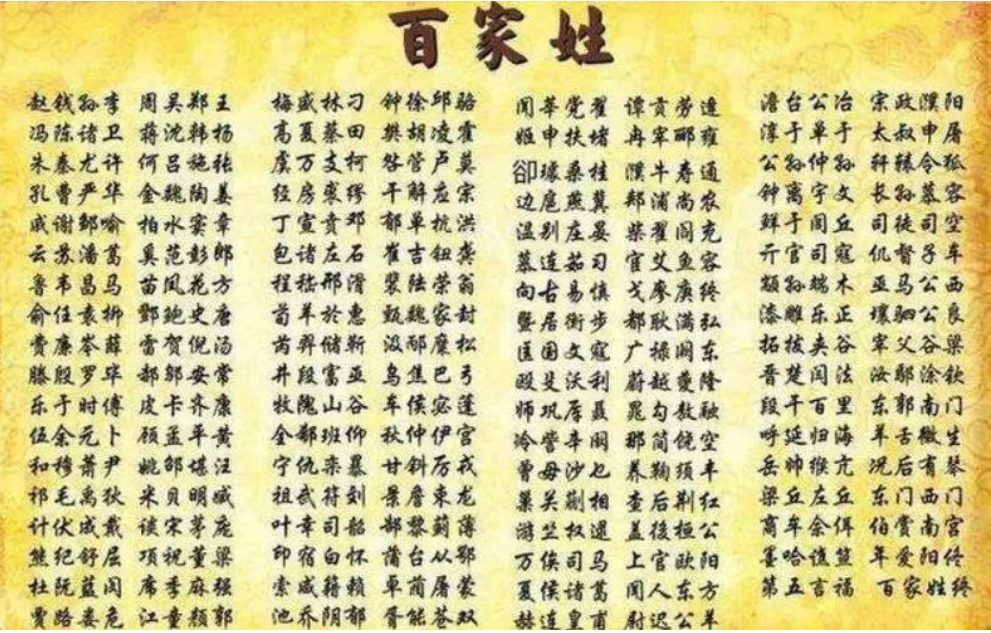 百家姓
赵钱孙李 周吴郑王
冯陈诸卫 蒋沈韩杨
朱秦尤许 何吕施张
孔曹严华 金魏陶姜
戚谢邹喻 柏水窦章
云苏潘葛 奚范彭郎
鲁韦昌马 苗凤花方
俞任袁柳 酆鲍史唐
费廉岑薛 雷贺倪汤
滕殷罗毕 郝邬安常
乐于时傅 皮卡齐康
伍余元卜 顾孟平黄
和穆萧尹 姚邵堪汪
祁毛禹狄 米贝明臧
计伏成戴 谈宋茅庞
熊纪舒屈 项祝董梁
杜阮蓝闵 席季麻强
贾路娄危 江童颜郭
梅盛林刁 钟徐邱骆
高夏蔡田 樊胡凌霍
虞万支柯 昝管卢莫
经房裘缪 干解应宗
丁宣贲邓 郁单杭洪
包诸左石 崔吉钮龚
程嵇邢滑 裴陆荣翁
荀羊於惠 甄魏家封
芮羿储靳 汲邴糜松
井段富巫 乌焦巴弓
牧隗山谷 车侯宓蓬
全郗班仰 秋仲伊宫
宁仇栾暴 甘斜厉戎
祖武符刘 景詹束龙
叶幸司韶 郜黎蓟薄
印宿白怀 蒲台从鄂
索咸籍赖 卓蔺屠蒙
池乔阴郁 胥能苍双
闻莘党翟 谭贡劳逄
姬申扶堵 冉宰郦雍
卻璩桑桂 濮牛寿通
边扈燕冀 郏浦尚农
温别庄晏 柴瞿阎充
慕连茹习 宦艾鱼容
向古易慎 戈廖庚终
暨居衡步 都耿满弘
匡国文寇 广禄阙东
殴殳沃利 蔚越夔隆
师巩厍聂 晁勾敖融
冷訾辛阚 那简饶空
曾毋沙乜 养鞠须丰
巢关蒯相 查后荆红
游竺权逯 盖後桓公
万俟司马 上官欧阳
夏侯诸葛 闻人东方
赫连皇甫 尉迟公羊
澹台公冶 宗政濮阳
淳于单于 太叔申屠
公孙仲孙 轩辕令狐
钟离宇文 长孙慕容
鲜于闾丘 司徒司空
亓官司寇 仉督子车
颛孙端木 巫马公西
漆雕乐正 壤驷公良
拓拔夹谷 宰父谷梁
晋楚闫法 汝鄢涂钦
段干百里 东郭南门
呼延归海 羊舌微生
岳帅缑亢 况后有琴
梁丘左丘 东门西门
商牟佘佴 伯赏南宫
墨哈谯笪 年爱阳佟
第五言福 百家姓终